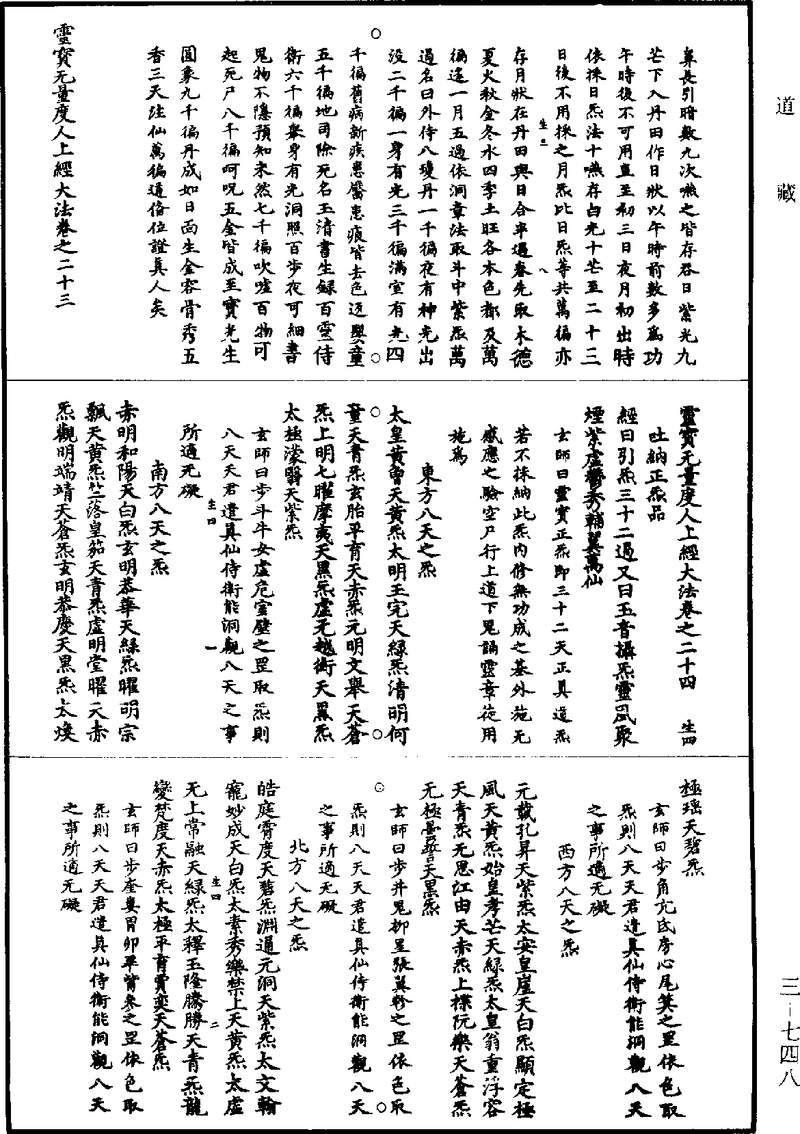 道藏
鼻長引暗數九次嚥之皆存吞日紫光九
芒下入丹田作日狀以午時前數多爲功
午時後不可用直至初三日夜月初出時
依採日炁法十嚥存白光十芒至二十三
日後不用採之月炁比日炁等共萬徧亦
存月狀在丹田與日合畢遇春先取木德
夏火秋金冬水四季土旺各本色都及萬
徧遂一月五過依洞章法取斗中紫炁萬
過名曰外侍八瓊丹一千徧夜有神光出
没二千徧一身有光三千徧滿室有光四
千徧舊病新疾患醫患痕皆去色返嬰童
五千徧地司除死名玉清書生録百靈侍
衛六千徧舉身有光洞照百步夜可細書
鬼物不隱預知未然七千徧吹噓百物可
起死尸八千徧呵呪五金皆成至寶光生
圓象九千徧丹成如日面生金容骨秀五
香三天注仙萬徧道俻位證真人矣
靈寶无量度人上經大法卷之二十三
生三
八
靈寶无量度人上經大法卷之二十四 生四
吐納正炁品
經曰引炁三十二過又曰玉音攝炁靈風聚
煙紫虛鬱秀輔翼萬仙
玄師曰靈寶正炁即三十二天正真道炁
若不採納此炁内修無功成之基外施无
感應之驗空尸行上道下鬼誦靈章徒用
施爲
東方八天之炁
太皇黄曾天黄炁太明玉完天緑炁清明何
童天青炁玄胎平育天赤炁元明文舉天蒼
炁上明七曜摩夷天黑炁虛无越衡天黑炁
太極濛翳天紫炁
玄師曰步斗牛女虛危室壁之罡取炁則
八天天君遣真仙侍衛能洞觀八天之事
所適无礙
生四
一
南方八天之炁
赤明和陽天白炁玄明恭華天緑炁曜明宗
飄天黄炁竺落皇笳天青炁虛明堂曜天赤
炁觀明端靖天蒼炁玄明恭慶天黑炁太煥
極瑶天碧炁
玄師曰步角亢氐房心尾箕之罡依色取
炁則八天天君遣真仙侍衛能洞觀八天
之事所適无礙
西方八天之炁
元載孔昇天紫炁太安皇崖天白炁顯定極
風天黄炁始皇孝芒天緑炁太皇翁重浮容
天青炁无思江由天赤炁上楪阮樂天蒼炁
无極曇誓天黑炁
玄師曰步井鬼柳星張翼軫之罡依色取
炁則八天天君遣真仙侍衛能洞觀八天
之事所適无礙
北方八天之炁
皓庭霄度天碧炁淵通元洞天紫炁太文翰
寵妙成天白炁太素秀樂禁上天黄炁太虛
无上常融天緑炁太釋玉隆騰勝天青炁龍
變梵度天赤炁太極平育賈奕天蒼炁
生四
二
玄師曰步奎婁胃昴畢觜參之罡依色取
炁則八天天君遣真仙侍衛能洞觀八天
之事所適无礙
三-七四八